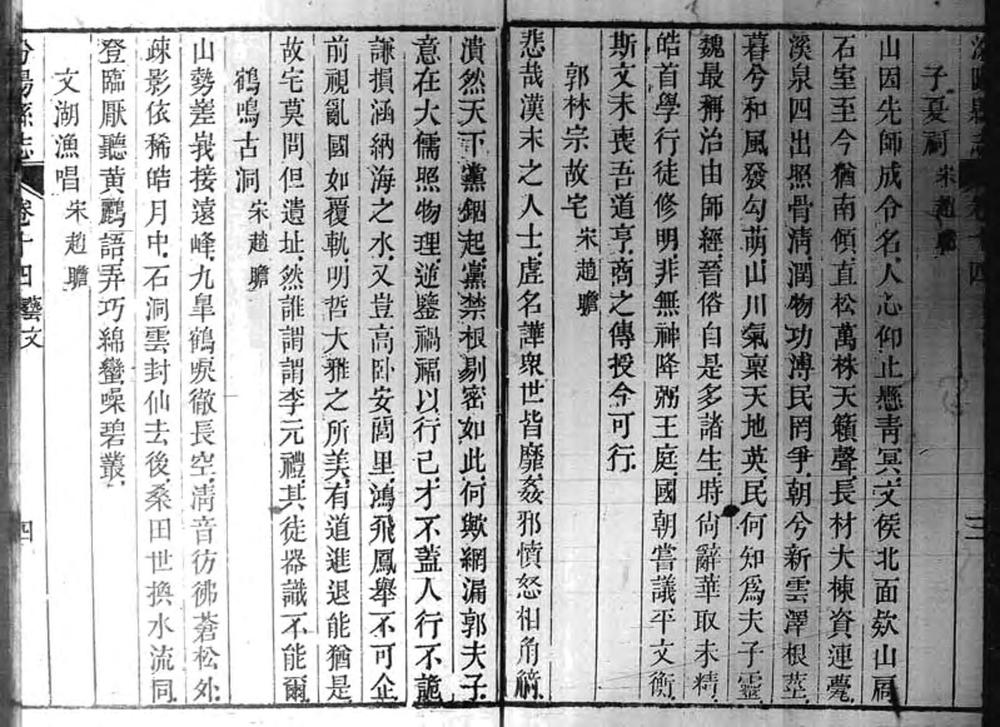 汾陽縣志 卷十四 三
子夏祠 宋趙瞻
山因先師成令名人心仰止懸青冥文侯北面欸山扃
石室至今猶南傾直松萬株天籟聲長材大棟資連甍
溪泉四出照骨清潤物功溥民罔爭朝兮新雲澤根莖
暮兮和風發勾萌山川氣禀天地英民何知爲夫子靈
魏最稱治由師經晉俗自是多諸生時尙辭華取未精
皓首學行徒修明非無神降弼王庭國朝嘗議平文衡
斯文未喪吾道亨商之傳授今可行
郭林宗故宅 宋趙瞻
悲哉漢末之人士虗名譁衆世皆靡姦邪憤怒相角觭
潰然天下黨錮起黨禁根剔密如此何歟網漏郭夫子
意在大儒照物理逆鑒禍福以行己才不蓋人行不詭
謙損涵納海之水又豈高卧安閭里鴻飛鳳舉不可企
前視亂國如覆軌明哲大雅之所美有道進退能猶是
故宅莫問但遺址然誰謂謂李元禮其徒器識不能爾
鶴鳴古洞 宋趙瞻
山勢差峩接遠峰九臯鶴唳徹長空淸音彷彿蒼松外
疎影依稀皓月中石洞雲封仙去後桑田世換水流同
登臨厭聽黄鸝語弄巧綿蠻噪碧叢
文湖漁唱 宋趙瞻
汾陽縣志 卷十四 藝文 四